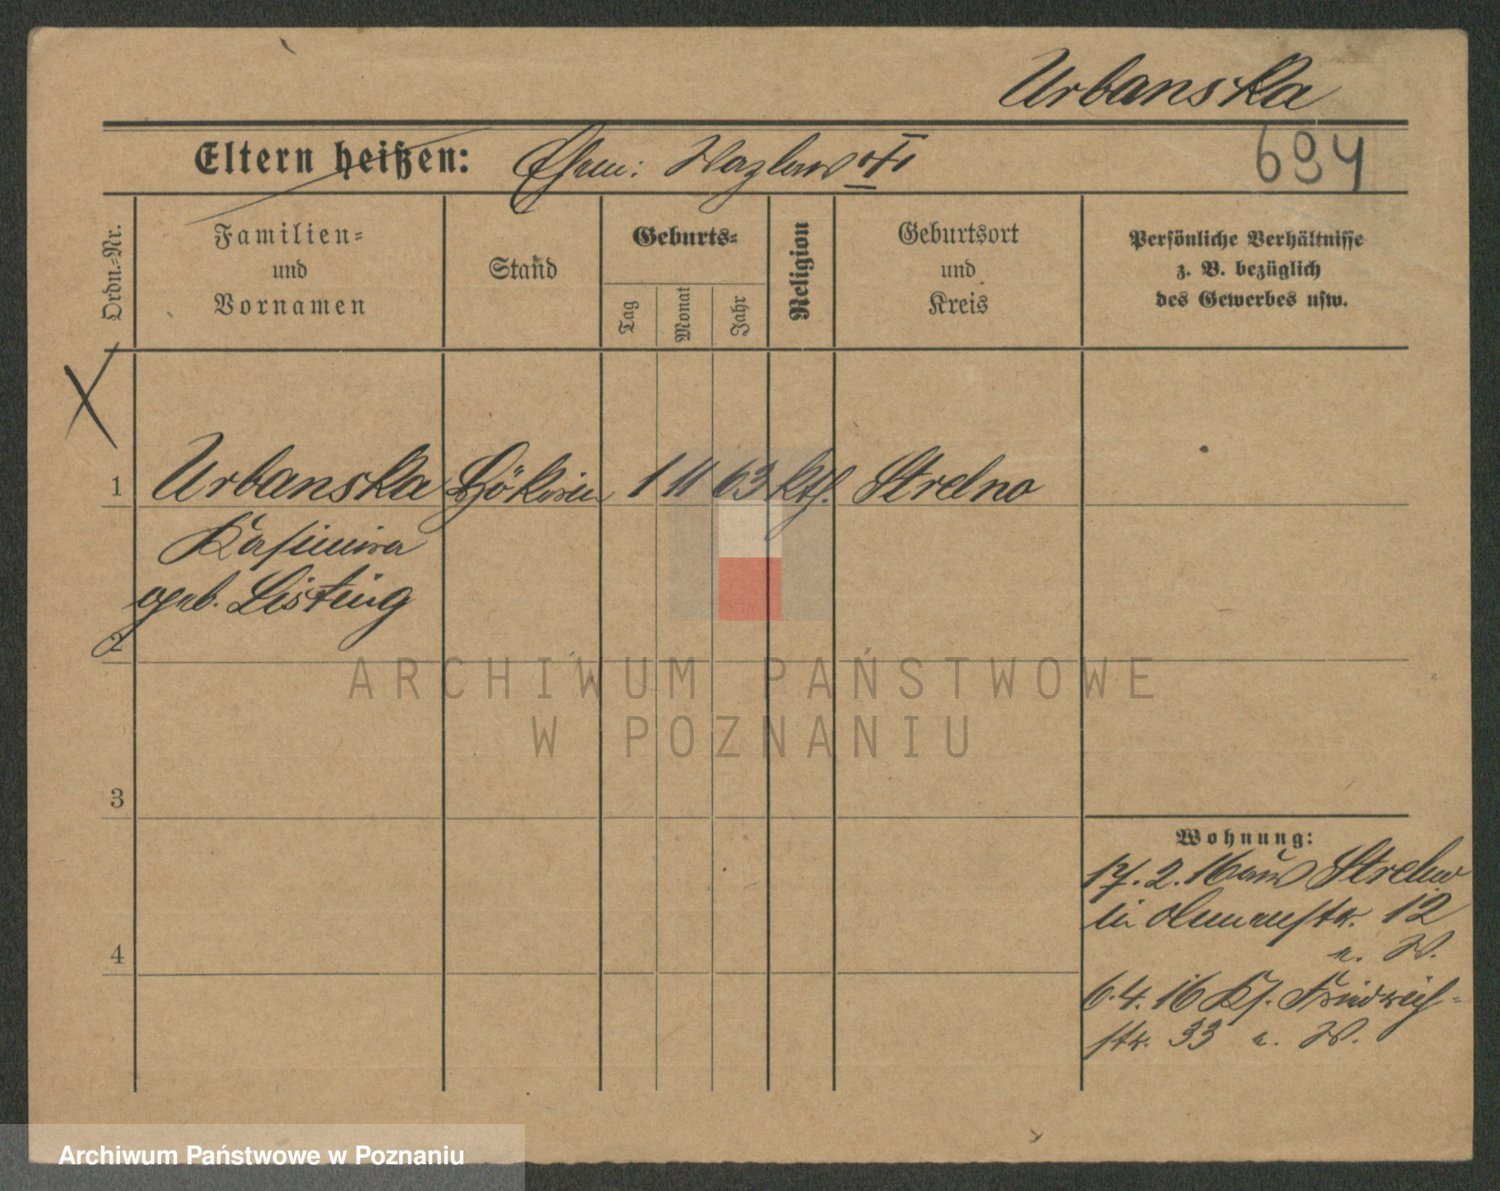 Urbanska
Eltern heißen: Ehem: Wazlaw
694
Ordn.-Nr.
Familien-
und
Vornamen
Stand
Geburts-
Tag
Monat
Jahr
Religion
Geburtsort
und
Kreis
Persönliche Verhältnisse
z. B. bezüglich
des Gewerbes usw.
1 Urbanska Hökerin 1 11 63 kth. Strelno
Kasimira
geb. Listing
2
3
4
Wohnung:
17. 2. 16 aus Strelno
in 12
n. W.
6. 4. 16 Ks. Friedrich-
str. 33 n. W.
ARCHIWUM PAŃSTWOWE
W POZNANIU
Archiwum Państwowe w Poznaniu